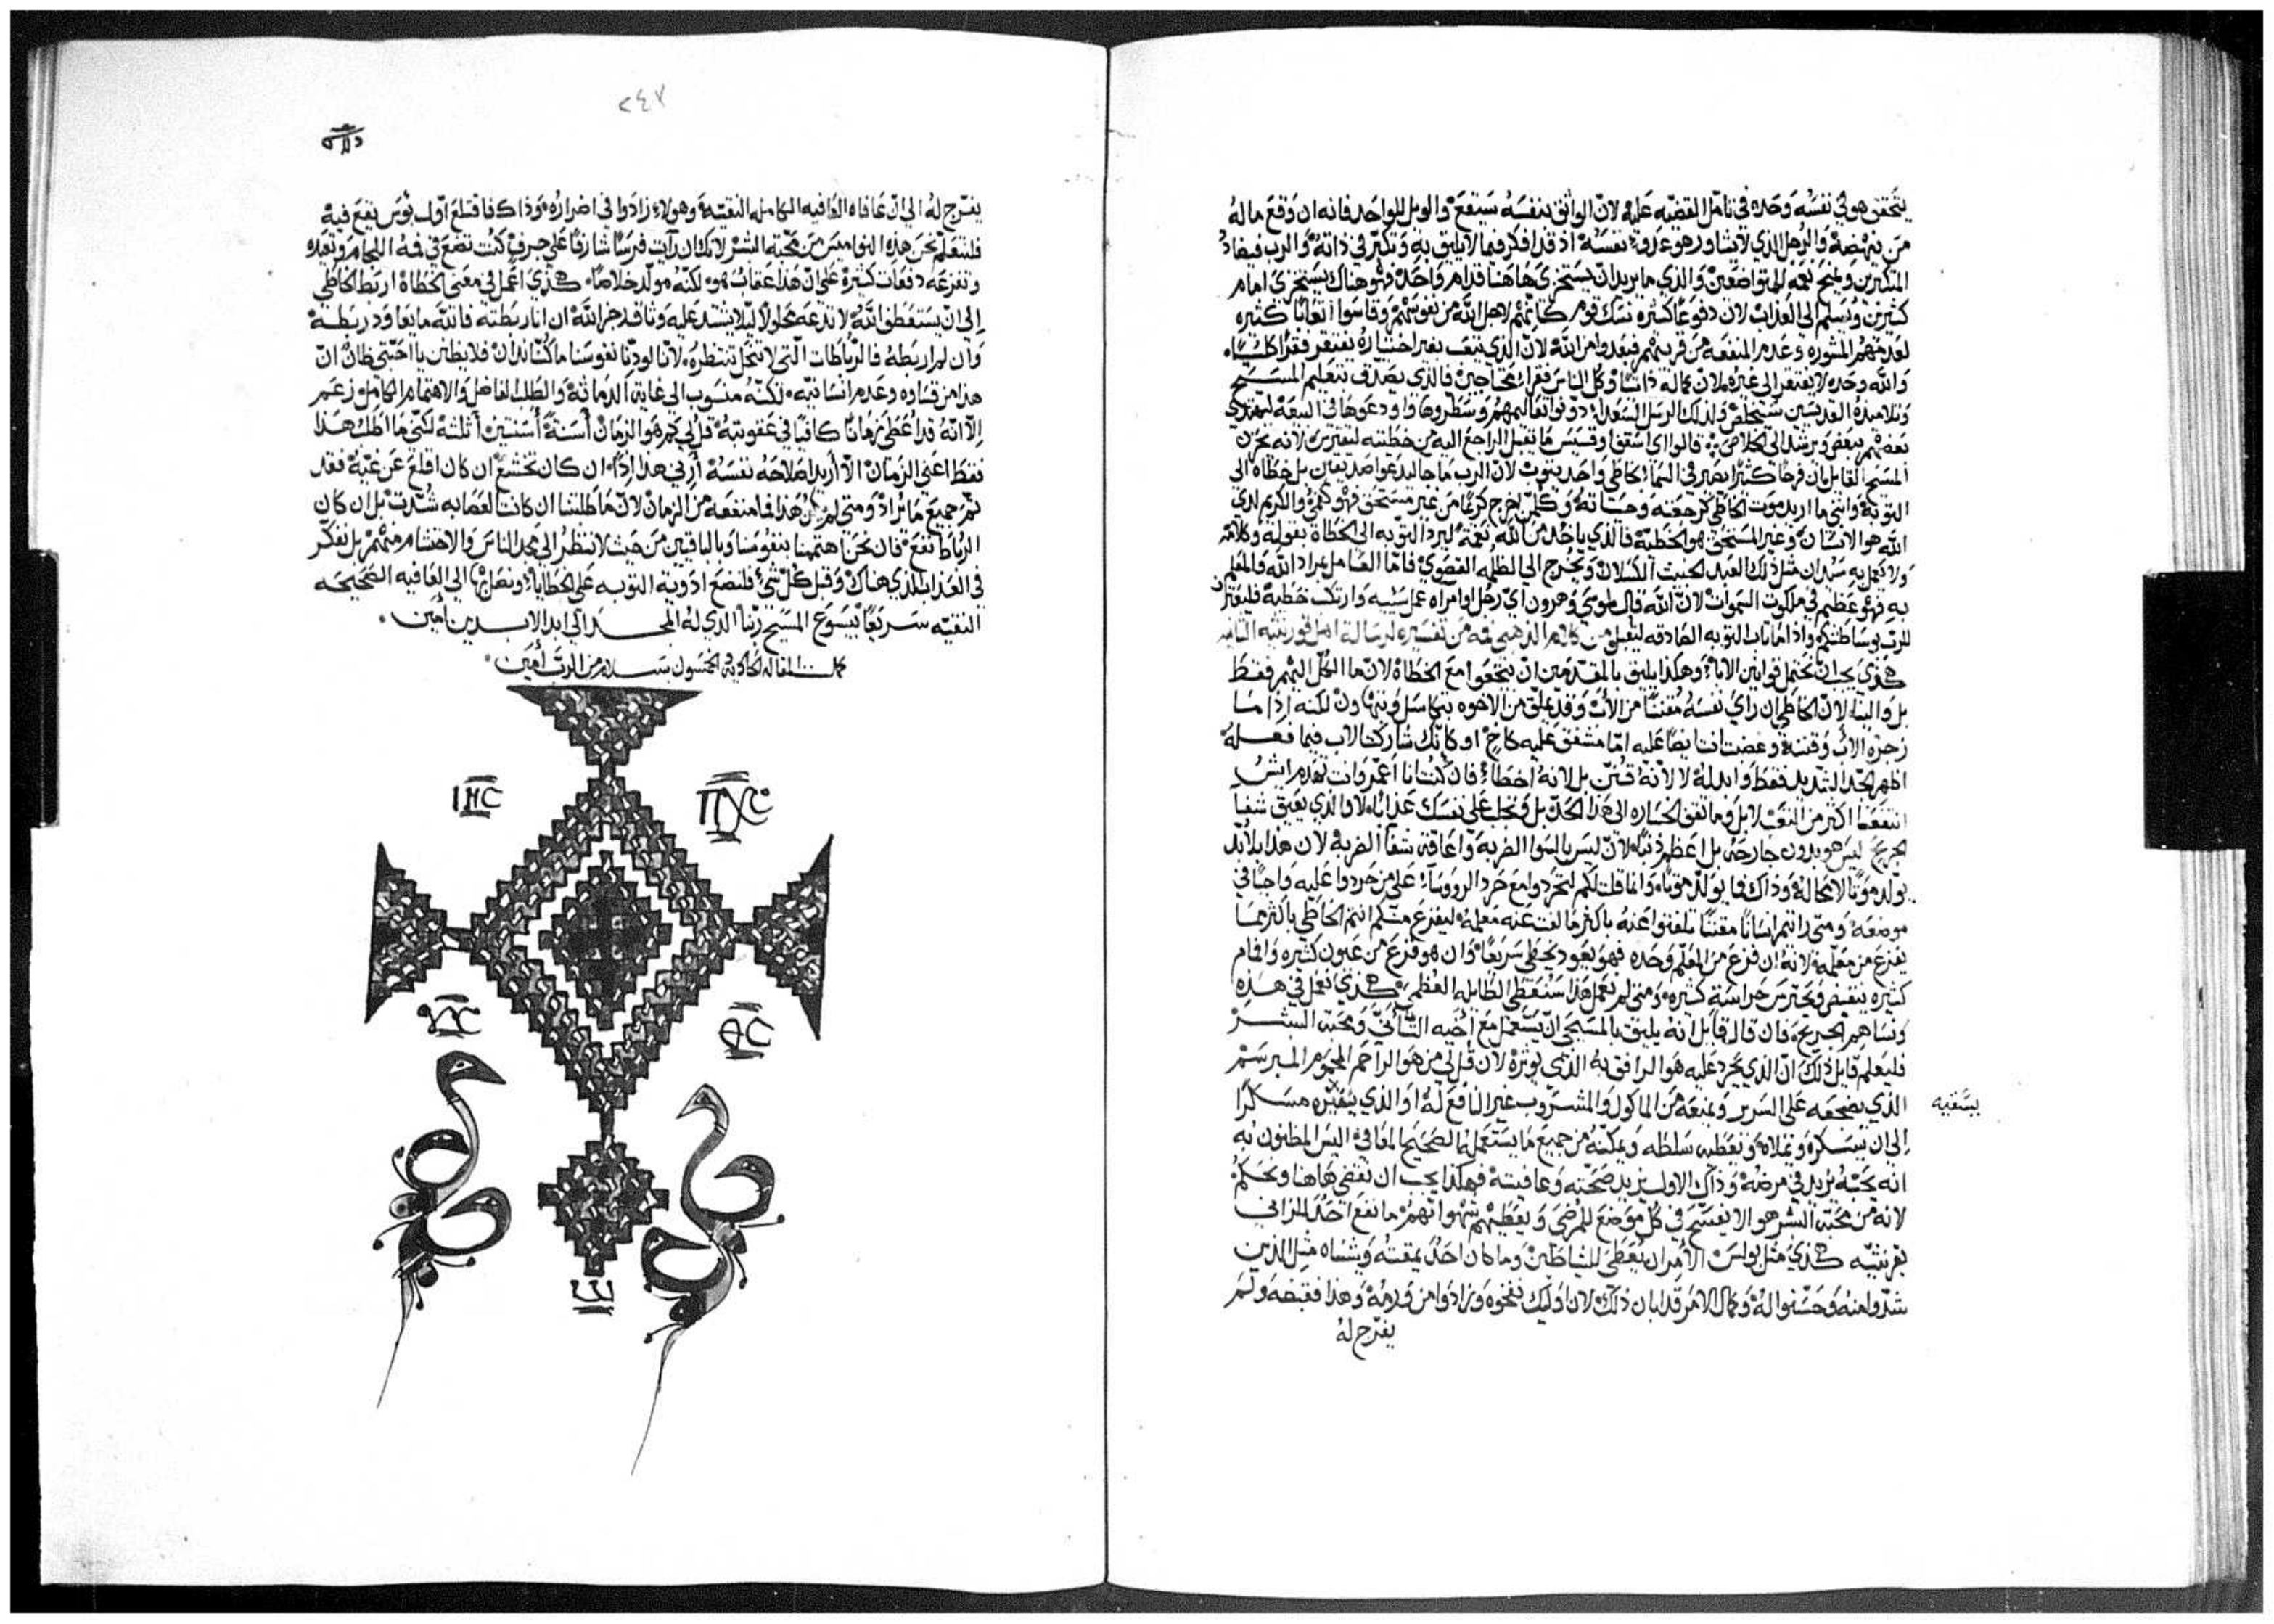 يتحقق هو في نفسه وحده في تامل القضيه عليه لان الواثق بنفسه سيقع والويل للواحد فانه ان وقع ما له
من ينهضه والرجل الذي لا يشاور هو عدو نفسه اذ قد افكر فيما لا يليق به وتكبر في ذاته والرب فيضاد
المتكبرين ويمنح نعمه للمتواضعين والذي ما يريد ان يستخزي هاهنا قدام واحد فهو هناك يستخزي امام
كثيرين ويسلم الى العذاب لان دفوعا كثره نسك قوم كانهم لاجل الله من نفوسهم وقاسوا اتعابا كثيره
لعدمهم المشوره وعدم المنفعه من قريبهم فبعدوا من الله لان الذي يتعب بغير اختياره يفتقر فقرا كليا
والله وحده لا يفتقر الى غيره لان كماله ذاتيا وكل الناس فقراء محتاجين فالذي يصدق بتعليم المسيح
وتلاميذه القديسين سيخلص ولذلك الرسل السعداء دونوا تعاليمهم وسطروها واودعوها في البيعه ليهتدي
بعضهم ببعض ويرشد الى الخلاص قالوا اي اسقف او قسيس ما يقبل الراجع اليه من خطيته ليفترس لانه يحزن
المسيح القايل ان فرحا كثيرا يصير في السماء بخاطي واحد يتوب لان الرب ما جا ليدعوا صديقين بل خطاه الى
التوبه وانني ما اريد موت الخاطي كرجعته وحياته وكلمن اخرج كريما من غير مستحق فهو كفمي والكريم لدى
الله هو الانسان وغير المستحق هو الخطيه فالذي ياخذ من الله نعمة ليرد التوبه الى الخطاة بقوله وكلامه
ولا يعمل به سيدان مثل ذلك العبد الخبيث الكسلان ويخرج الى الظلمه القصوى فاما العامل بمراد الله والمعلم
به فهو عظيم في ملكوت السموات لان الله قال لموسى وهرون اي رجل او امراه عمل سييه وارتكب خطية فليعترف
للرب بوساطتكم واذا امانات التوبه الصادقه ليقبل من كلام الذهبي فمه من تفسيره لرسالة اهل قورنتيه الثانيه
هكذي يجب ان نحتمل قوانين الاباء وهكذا يليق بالمقدمين ان يتحققوا مع الخطاة لان ما الكل اليهم فقط
بل والينا لان الخاطي ان راي نفسه مقتتا من الاب وقد يملق من الاخوه يتكاسل ويتهاون لكنه اذا ما
زجره الاب وقتته وغضبت انت ايضا عليه اما مشفق عليه كاخ او كانك شاركت الاب فيما فعله
اظهر الحد الشديد فقط وابدله لا لانه قنن بل لانه اخطاء فان كنت انا اعمر وانت تهدم ايش
انتفعنا اكثر من التعب لا بل وما تقف الخساره الى هذا الحد بل وتجلب على نفسك عذابا لا والذي يعيق شفا
الجريح ليس هو بدون جارحه بل اعظم ذنبا لان ليس بالسوا الضربه واعاقة شفا الضربه لان هذا يلابد
يولد موتا لا محالة وذاك فما يولد موتا وانما قلت لكم لتحردوا مع حرد الرووساء على من حردوا عليه واجبا في
موضعه ومتى رايتم انسانا مقتتا تلفتوا عنه باكثر ما لفت عنه معلمه ليفزع منكم انتم الخاطي باكثر مما
يفزع من معلمه لانه ان فزع من المعلم وحده فهو يعود يخطي سريعا وان هو فزع من عيون كثيره وافمام
كثيره ينقبض ويحترس حراسة كثيره ومتى لم نعمل هذا سنعطي الطايله العظمى هكذي نعمل في هذه
ونساهم الجريح فان قال قايل انه يليق بالمسيحي ان يستعمل مع اخيه التاني ومحبة البشر
فليعلم قايل ذلك ان الذي يحرد عليه هو الرافق به الذي يوثره لان قل لي من هو الراحم المحموم المبرسم
الذي يضجعه على السرير ويمنعه من الماكول والمشروب غير النافع له او الذي يتقيه مسكرا
يسقيه
الى ان يسكره ويملاه ويعطيه سلطه ويمكنه من جميع ما يستعمله الصحيح المعافي اليس المظنون به
انه يحبه يزيد في مرضه وذاك الاول يزيد صحته وعافيته فهكذا يجب ان نقضي هاهنا ونحكم
لانه من محبة البشر هو الا يفسح في كل موضع للمرضى ويعطيهم شهواتهم ما نفع احد المزاني
بقرنتيه هكذي مثل بولس الامران يعطى للشياطين وما كان احد يمقته ويشناه مثل الذين
شدوا منه وحسنوا له وكمال الامر قد ابان ذلك لان اوليك نفخوه وزادوا من ورمه وهذا فقبضه ولم
يفرج له
٢٤٧
يفرج له الى ان عافاه العافيه الكامله النقيه وهولاء زادوا في اضراره وذاك فاقتلع اول بوس يقع فيه
فلنتعلم نحن هذه النواميس من محبة البشر لانك ان رايت فرسا شارفا على جرف كنت تضع في فمه اللجام وتبعده
وتفزعه دفعات كثيرة على ان هذا عقاب هو لكنه مولد خلاصا هكذي اعمل في معنى الخطاة اربط الخاطي
الى ان يستعطفوا الله لا تدعه محلولا ليلا يشتد عليه وثاقه رجز الله ان انا ربطته فالله ما يعاود ربطه
وان لم اربطه فالرباطات التي لا تنحل تنتظره لانا لو دنا نفوسنا ما كنا ندان فلا يظنن يا احبتي ظان ان
هذا من قساوه وعدم انسانيه لكنه منسوب الى غاية الدماثه والطلب الفاضل والاهتمام الكامل زعم
الا انه قد اعطي زمانا كافيا في عقوبته قل لي كم هو الزمان اسنة اسنتين اثلثه لكني ما اطلب هذا
فقط اعني الزمان الا اريد اصلاحه نفسه ارني هذا اذا ان كان تخشع ان كان اقلع عن غيه فقد
تم جميع ما يراد ومتى لم يكن هذا فما منفعه من الزمان لان ما طلبنا ان كانت العصابه شدت بل ان كان
الرباط نفع فان نحن اهتممنا بنفوسنا وبالباقيين من حيث لا ننظر الى مجد الناس والاحتشام منهم بل نفكر
في العذاب الذي هناك وقبل كل شي فلنضع ادوية التوبه على الخطايا ونصل الى العافيه الصحيحه
النقيه سريعا بيسوع المسيح ربنا الذي له المجد الى ابد الابدين امين
كملت المقاله الحاديه والخمسون بسلام من الرب امين
ⲒⲎⲤ
ⲠⲬⲤ
ⲨⲤ
ⲐⲤ